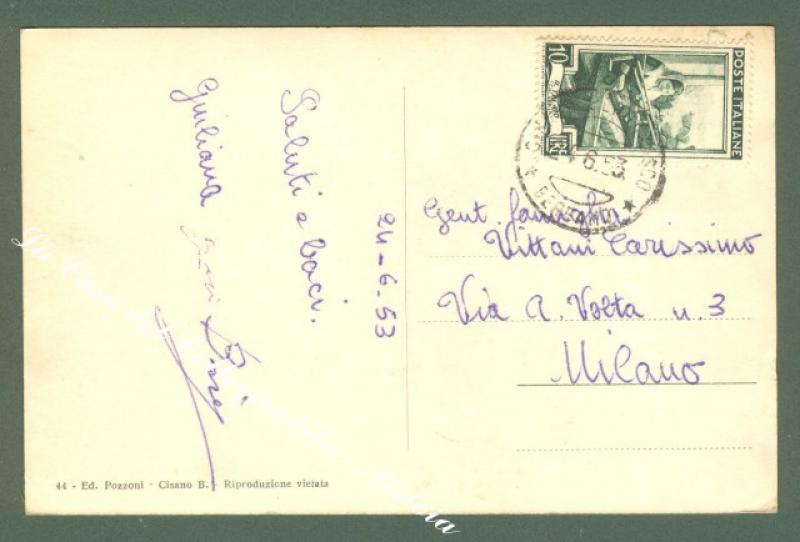 Saluti e baci.
24-6.53
Giuliana
Gent. famiglia
Vittani Carissimo
Via A. Volta n. 3
Milano
POSTE ITALIANE
10
LIRE
6.53
BERGAMO
44 - Ed. Pozzoni - Cisano B. - Riproduzione vietata